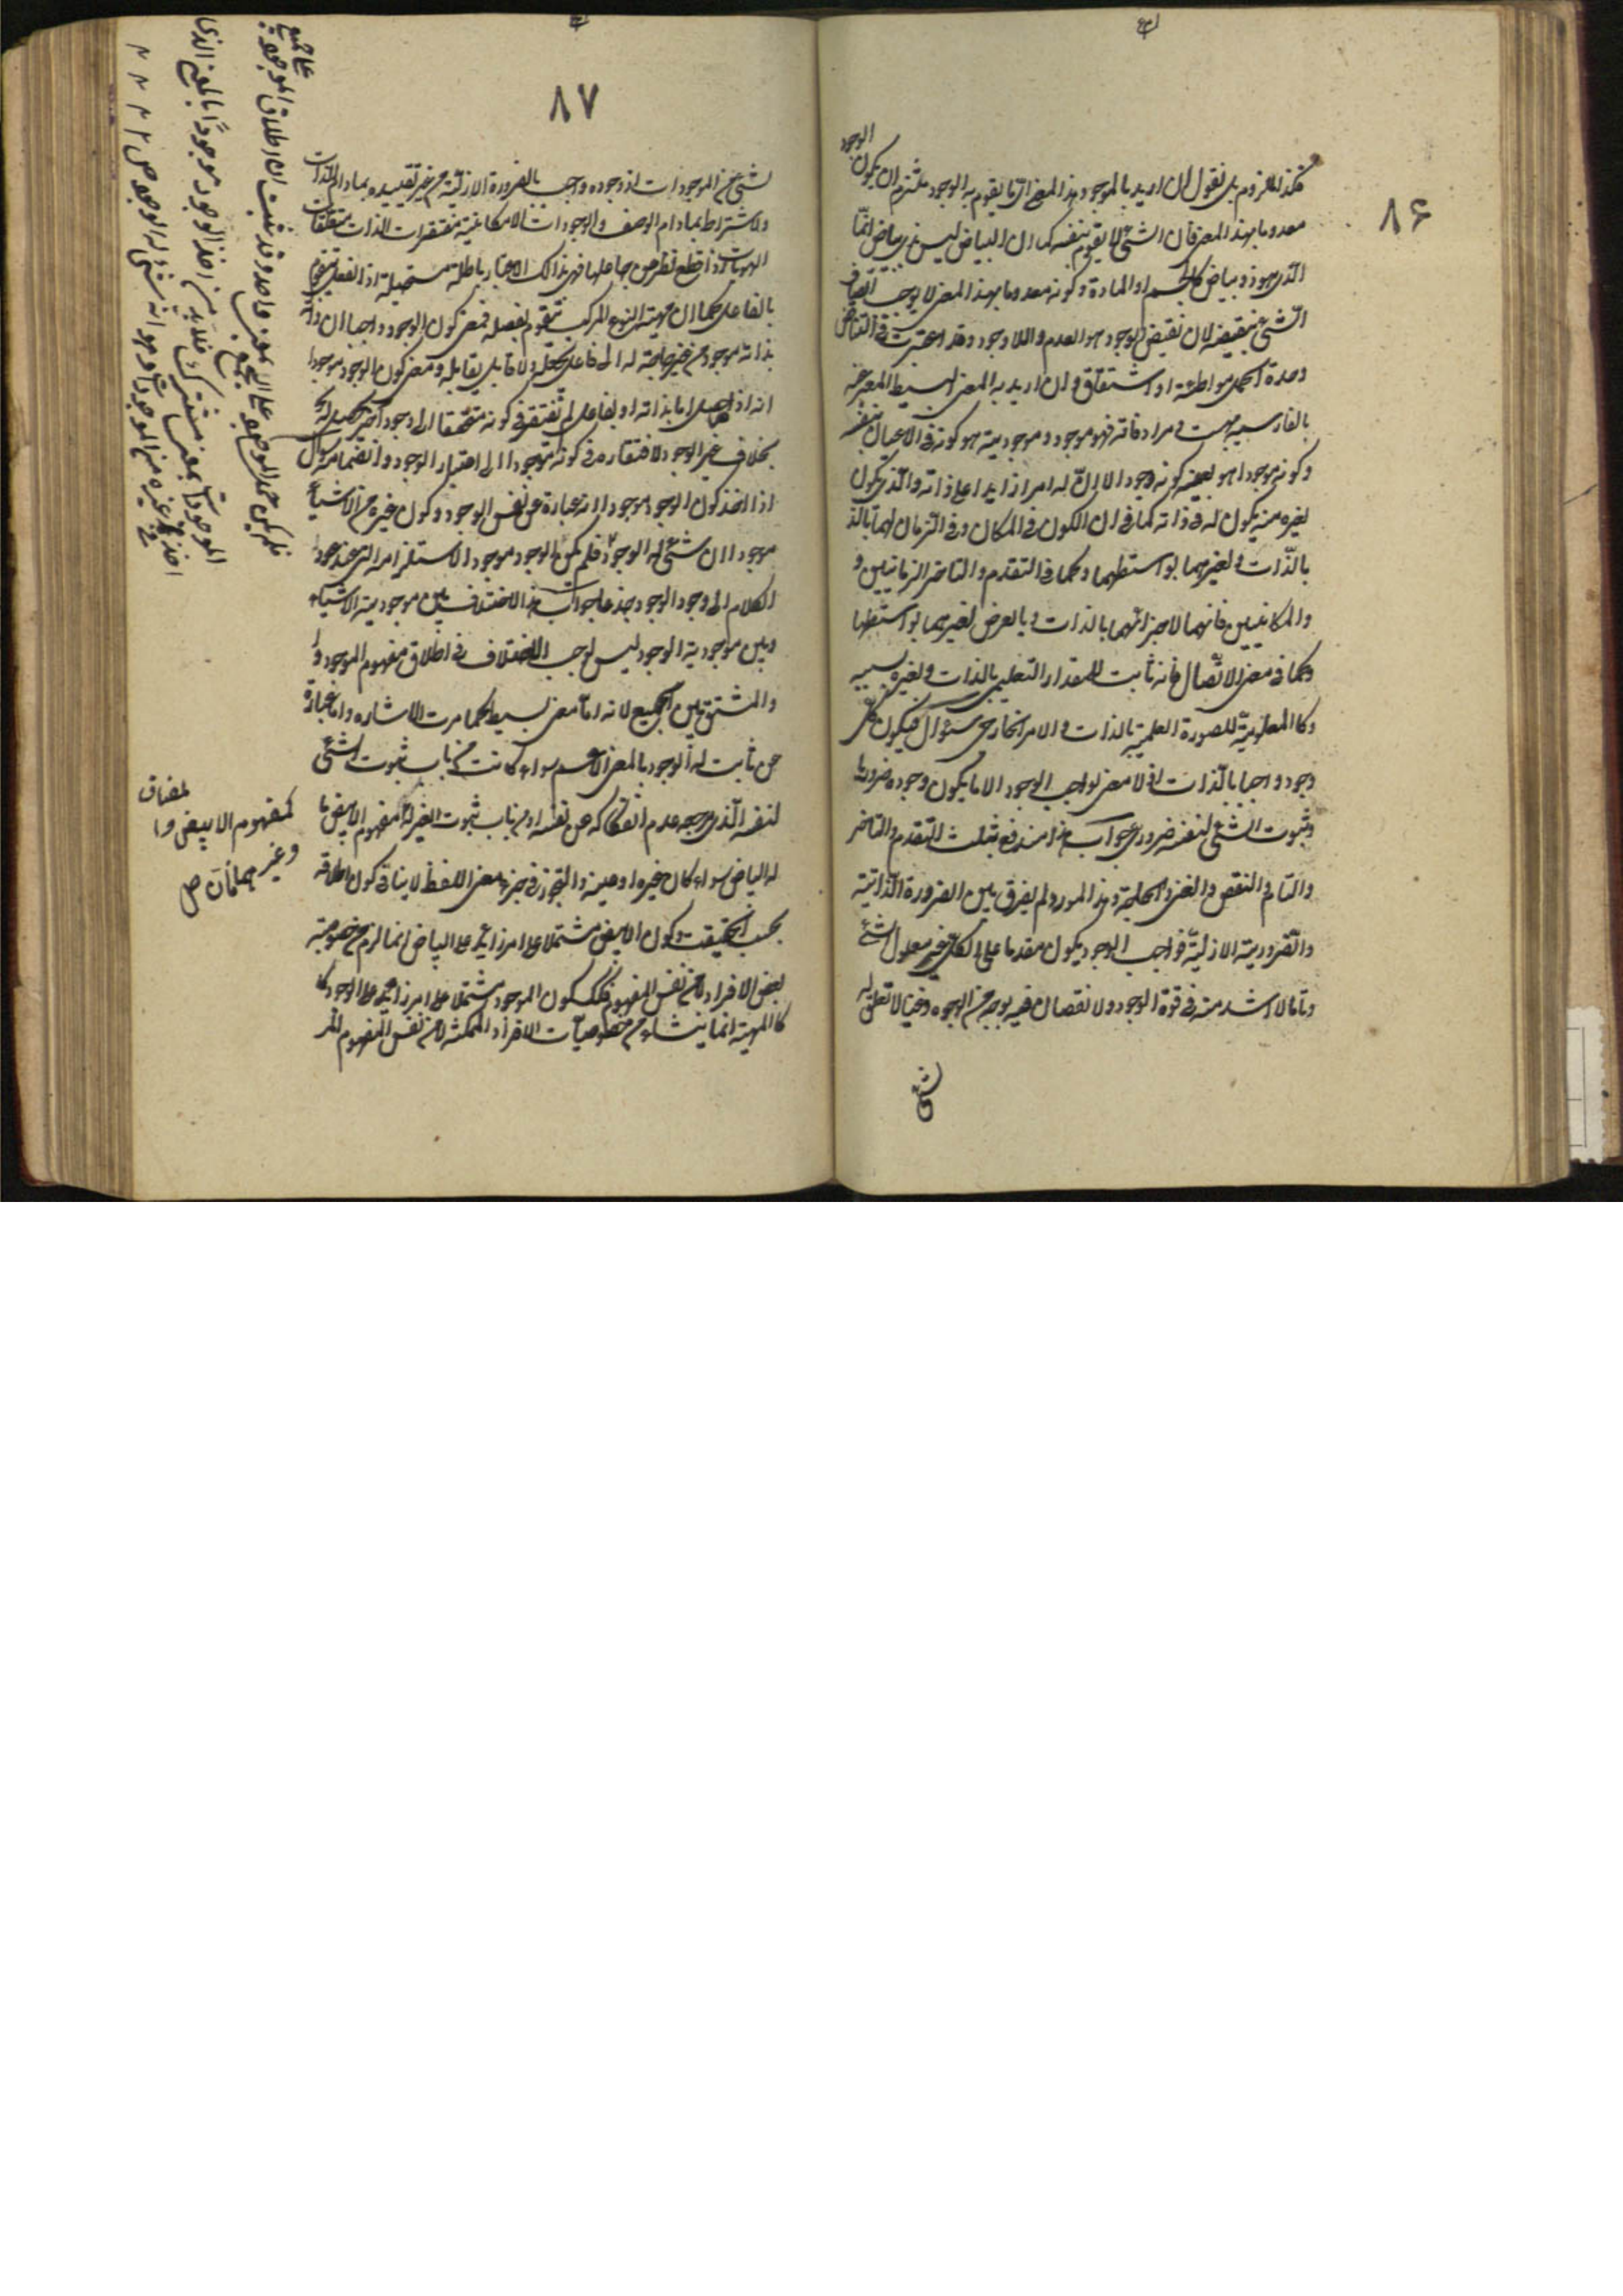 ٨۶
الوجود
هكذا فالزوم بل نقول ان اريد بالموجود هذا المعنى اى ما يقوم به الوجود يلتزم ان يكون
معدوما بهذا المعنى فان الشئ لا يقوم بنفسه كما ان البياض ليس بذى بياض انما
الذى هو ذو بياض كالجسم او المادة و كونه معدوما بهذا المعنى لا يوجب اتصاف
الشئ بنقيضه لان نقيض الوجود هو العدم و اللاوجود وقد اعتبرت فى التناقض
وحدة الحمل مواطئة او اشتقاق و ان اريد به المعنى البسيط المعبر عنه
بالفارسية بهست و مرادفاته فهو موجود و موجوديته هو كونه فى الاعيان بنفسه
و كونه موجودا هو بعينه كونه وجودا لا ان له امرا زايدا على ذاته والذى يكون
لغيره منه يكون له فى ذاته كما فى ان الكون فى المكان و فى الزمان لهما بالذ
بالذات و لغيرهما بواسطتهما و كما فى التقدم و التاخر الزمانيين و
والمكانيين فانهما لاجزائهما بالذات و بالعرض لغيرهما بواسطتها
و كما فى معنى الاتصال فانه ثابت للمقدار التعليمى بالذات و لغيره بسببه
و كالمعلومية للصورة العلمية بالذات و للامر الخارجى سؤال فيكون كل
وجود واجبا بالذات اذ لا معنى لواجب الوجود الا ما يكون وجوده ضروريا
و ثبوت الشئ لنفسه ضرورى جواب هذا مندفع بثلث التقدم و التاخر
والتمام و النقص و الغنى و الحاجة و هذا المورد لم يفرق بين الضرورة الذاتية
والضرورية الازلية فواجب الوجود يكون مقدما على الكل غير معلول لشئ
وتاما لا اشد منه فى قوة الوجود و لا نقصان فيه بوجه من الوجوه و غنيا لا تعلق له
بشئ
٨٧
لشئ من الموجودات اذ وجوده واجب بالضرورة الازلية من غير تقييده بمادام الذات
ولا اشتراط بمادام الوصف والوجودات الامكانية مفتقرات الذات متعلقات
الهويات اذا قطع النظر عن جاعلها فهى بذلك الاعتبار باطلة مستحيلة اذ الفعل يتقوم
بالفاعل كما ان مهية النوع المركب تتقوم بفصله فمعنى كون الوجود واجبا ان ذاته
بذاته موجود من غير حاجة له الى فاعل يجعله ولا قابل يقابله و معنى كون الوجود موجودا
انه اذا حصل اما بذاته او بفاعل لم يفتقر فى كونه متحققا الى وجود آخر يحصل له
بخلاف غير الوجود لافتقاره فى كونه موجودا الى اعتبار الوجود و انضمامه سؤال
اذا اخذ كون الوجود موجودا انه عبارة عن نفس الوجود و كون غيره من الاشياء
موجودا ان شئ له الوجود فلم يكن الوجود موجودا لاستلزامه التس عند عود
الكلام الى وجود الوجود جذعا جواب هذا الاختلاف بين موجودية الاشياء
وبين موجودية الوجود ليس يوجب الاختلاف فى اطلاق مفهوم الموجود و ا
والمشتق بين الجميع لانه اما معنى بسيط كما مرت الاشاره و اما عبارة
عن ثابت له الوجود بالمعنى الاعم سواء كانت من باب ثبوت الشئ
لنفسه الذى مرجعه عدم انفكاكه عن نفسه او من باب ثبوت الغير له كمفهوم الابيض ما
له البياض سواء كان غيره او عينه و التجوز فى جزء معنى اللفظ لا ينافى كون اطلاقه
بحسب الحقيقة و كون الابيض مشتملا على امر زائد على البياض انما لزم من خصوصية
بعض الافراد لا من نفس المفهوم فكذلك كون الموجود مشتملا على امر زائد على الوجود كا
كالمهية انما ينشاء من خصوصيات الافراد الممكنة لا من نفس المفهوم المر
على جميع
فلم يكن حمل الوجود على الجميع بمعنى واحد و قد ثبت ان اطلاق الموجود
الموجودات بمعنى مشترك فلا بد من اخذ الوجود موجودا بالمعنى الذى
اخذ فى غيره من الموجودات و هو انه شئ له الوجود ص
لمضاف
كمفهوم الابيض و ا
وغيرهما فان ص